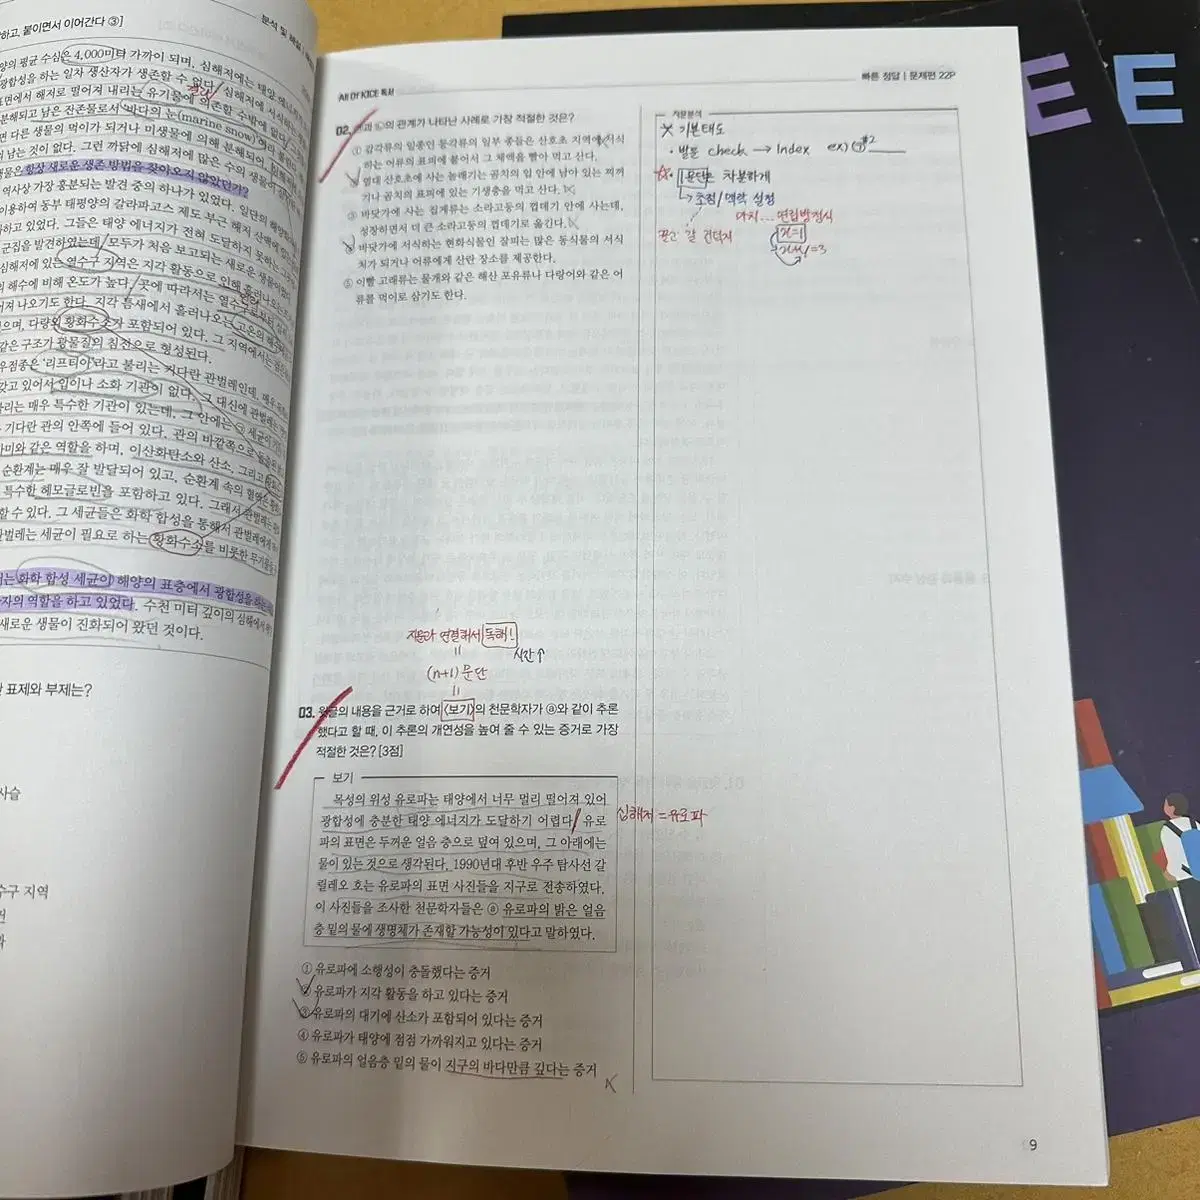 하고, 붙이면서 이어간다 ③]
분석 및 해설
양의 평균 수심은 4,000미터 가까이 되며, 심해저에는 태양
광합성을 하는 일차 생산자가 생존할 수 없다. 심해저에 서식하는
표면에서 해저로 떨어져 내리는 유기물에 의존할 수밖에 없다.
분해되고 남은 잔존물로서 '바다의 눈(marine snow)'이라
면 다른 생물의 먹이가 되거나 미생물에 의해 분해되어,
남는 것이 없다. 그런 까닭에 심해저에 많은 수의 생물이
생물은 항상 새로운 생존 방법을 찾아오지 않았던가?
역사상 가장 흥분되는 발견 중의 하나가 있었다. 일단의 해양
이용하여 동부 태평양의 갈라파고스 제도 부근 해저 산맥에
하고 있었다. 그들은 태양 에너지가 전혀 도달하지 못하는
군집을 발견하였는데, 모두가 처음 보고되는 새로운 생물이었다.
심해저에 있는 열수구 지역은 지각 활동으로 인해 흘러나오는
의 해수에 비해 온도가 높다. 곳에 따라서는 열수
져 나오기도 한다. 지각 틈새에서 흘러나오는 고온의 해수
으며, 다량의 황화수소가 포함되어 있다. 그 지역에서는
같은 구조가 광물질의 침전으로 형성된다.
우점종은 '리프티아'라고 불리는 커다란 관벌레인데, 매우
갖고 있어서 입이나 소화 기관이 없다. 그 대신에 관벌레는
리는 매우 특수한 기관이 있는데, 그 안에는 ㉠ 세균이
기다란 관의 안쪽에 들어 있다. 관의 바깥쪽으로
가미와 같은 역할을 하며, 이산화탄소와 산소, 그리고
순환계는 매우 잘 발달되어 있고, 순환계 속의 혈액은
특수한 헤모글로빈을 포함하고 있다. 그래서 관벌레는
할 수 있다. 그 세균들은 화학 합성을 통해서 관벌레에게
관벌레는 세균이 필요로 하는 황화수소를 비롯한 무기물을
는 화학 합성 세균이 해양의 표층에서 광합성을 하는
자의 역할을 하고 있었다. 수천 미터 깊이의 심해에서
새로운 생물이 진화되어 왔던 것이다.
표제와 부제는?
사슬
수구 지역
All Of KICE 독서
빠른 정답 | 문제편 22P
02. 과 ㉡의 관계가 나타난 사례로 가장 적절한 것은?
① 갑각류의 일종인 등각류의 일부 종들은 산호초 지역에 서식
하는 어류의 표피에 붙어서 그 체액을 빨아 먹고 산다.
② 열대 산호초에 사는 놀래기는 곰치의 입 안에 남아 있는 찌꺼
기나 곰치의 표피에 있는 기생충을 먹고 산다.
③ 바닷가에 사는 집게류는 소라고둥의 껍데기 안에 사는데,
성장하면서 더 큰 소라고둥의 껍데기로 옮긴다.
④ 바닷가에 서식하는 현화식물인 잘피는 많은 동식물의 서식
처가 되거나 어류에게 산란 장소를 제공한다.
⑤ 이빨 고래류는 물개와 같은 해산 포유류나 다랑어와 같은 어
류를 먹이로 삼기도 한다.
지문분석
기본태도
• 발문 check → Index ex) ㉠ #2
☆• 1문단은 차분하게
↳ 초점/맥락 설정
마치... 연립방정식
끌고 갈 건더지
x=1
x+y=3
지문과 연결해서 독해!
시간↑
=
(n+1) 문단
=
03. 윗글의 내용을 근거로 하여 <보기>의 천문학자가 ⓐ와 같이 추론
했다고 할 때, 이 추론의 개연성을 높여 줄 수 있는 증거로 가장
적절한 것은? [3점]
보기
목성의 위성 유로파는 태양에서 너무 멀리 떨어져 있어
광합성에 충분한 태양 에너지가 도달하기 어렵다. 유로
파의 표면은 두꺼운 얼음 층으로 덮여 있으며, 그 아래에는
물이 있는 것으로 생각된다. 1990년대 후반 우주 탐사선 갈
릴레오 호는 유로파의 표면 사진들을 지구로 전송하였다.
이 사진들을 조사한 천문학자들은 ⓐ 유로파의 밝은 얼음
층 밑의 물에 생명체가 존재할 가능성이 있다고 말하였다.
심해저 = 유로파
① 유로파에 소행성이 충돌했다는 증거
② 유로파가 지각 활동을 하고 있다는 증거
③ 유로파의 대기에 산소가 포함되어 있다는 증거
④ 유로파가 태양에 점점 가까워지고 있다는 증거
⑤ 유로파의 얼음층 밑의 물이 지구의 바다만큼 깊다는 증거
9
E E